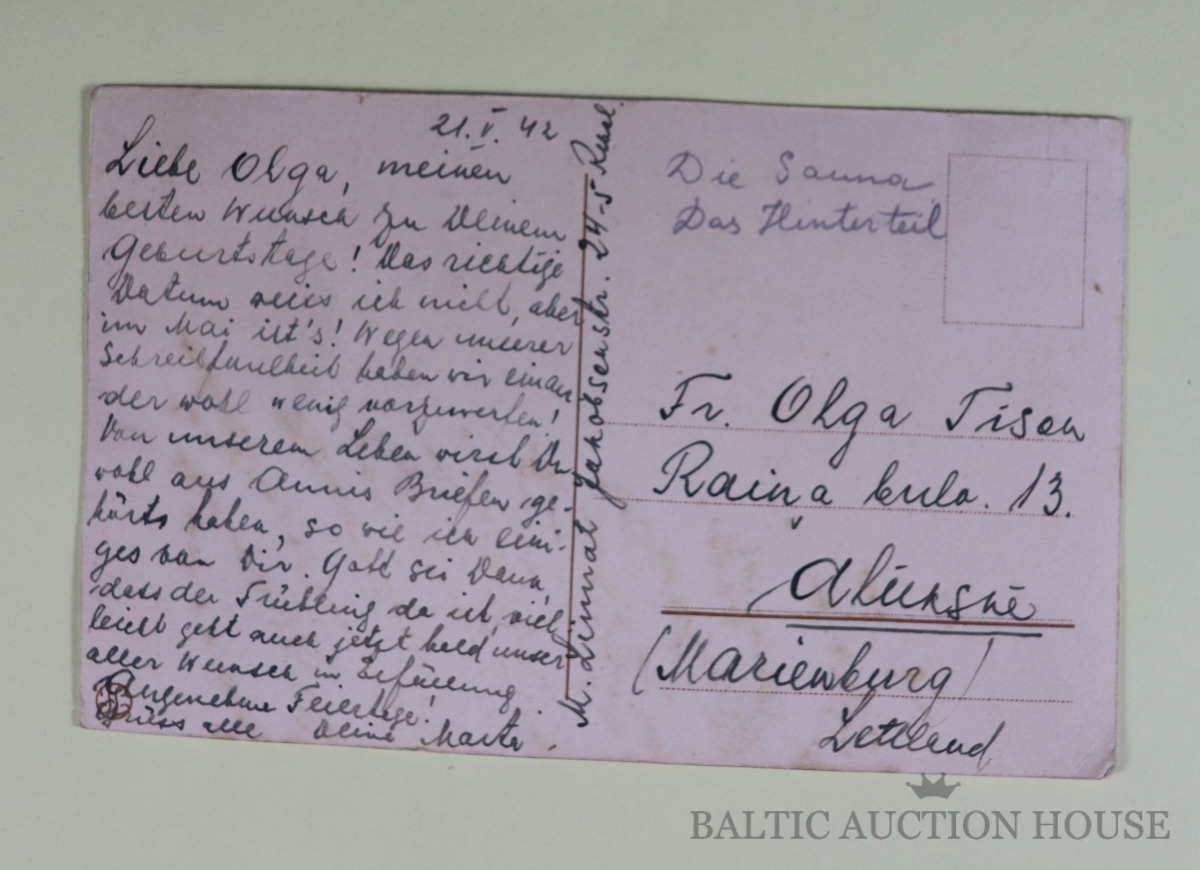 21.V.42
Liebe Olga, meinen
besten Wunsch zu Deinem
Geburtstage! Das richtige
Datum weiss ich nicht, aber
im Mai ist's! Wegen unserer
Schreibfaulheit haben wir einan
der wohl wenig vorzuwerfen!
Von unserem Leben wirst Du
wohl aus Annis Briefen ge-
hört haben, so wie ich eini-
ges von Dir. Gott sei Dank,
dass der Frühling da ist, viel
leicht geht auch jetzt bald unser
aller Wunsch in Erfüllung.
Angenehme Feiertage!
Grüss alle Deine Marta.
M. Linnat Jakobsenstr. 24-5 Reval.
Die Sauna
Das Hinterteil
Fr. Olga Tison
Raiņa bulv. 13.
Alūksnē
(Marienburg)
Lettland
BALTIC AUCTION HOUSE